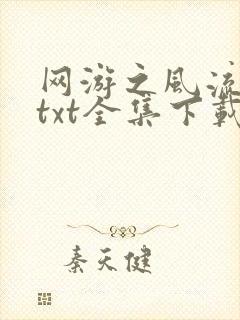 网游之风流
txt全集下载
秦天健